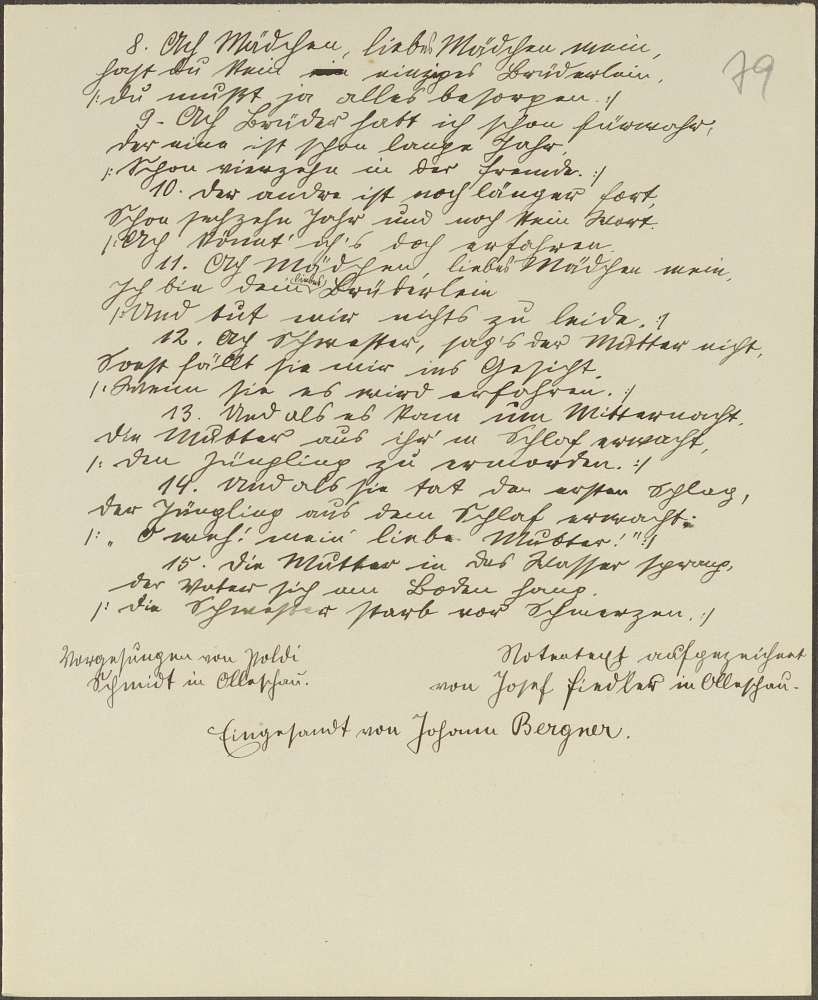 79
8. Ach Mädchen, liebes Mädchen mein,
hast du kein einziges Brüderlein,
/: du mußt ja alles besorgen. :/
9. Ach Brüder hatt ich schon fürwahr,
der eine ist schon lange Jahr,
/: Schon vierzehn in der Fremde. :/
10. Der andre ist noch länger fort,
Schon sechzehn Jahr und noch kein Wort.
/: Ach könnt' ich's doch erfahren.
11. Ach Mädchen, liebes Mädchen mein,
Ich bin dein liebes Brüderlein
/: Und tut mir nichts zu leide. :/
12. Ach Schwester, sag's der Mutter nicht,
Sonst fällt sie mir ins Gesicht,
/: Wenn sie es wird erfahren. :/
13. Und als es kam um Mitternacht,
Die Mutter aus ihr'm Schlaf erwacht,
/: Den Jüngling zu ermorden. :/
14. Und als sie tat den ersten Schlag,
Der Jüngling aus dem Schlaf erwacht:
/: „O weh! mein liebe Mutter!" :/
15. Die Mutter in das Wasser sprang,
der Vater sich am Boden hang.
/: Die Schwester starb vor Schmerzen. :/
Vorgesungen von Poldi
Schmidt in Olleschau.
Notentext aufgezeichnet
von Josef Fiedler in Olleschau.
Eingesandt von Johann Bergner.